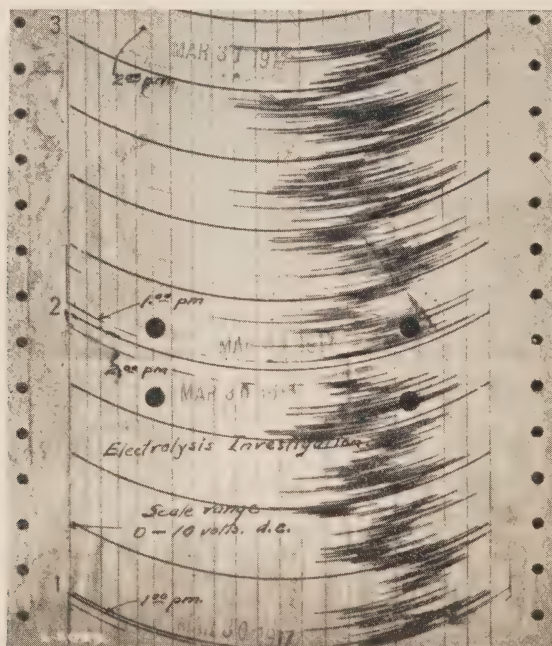 3
MAR 30 191
2 00 pm.
1.00 pm
2
MA
2.00 pm
MAR 30
Electrolysis Investigation
Scale range
0 – 10 volts. d.c.
1
1 00 pm.
30 1917